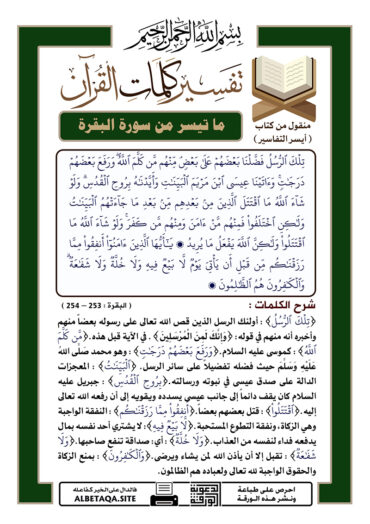 بسم الله الرحمن الرحيم
تفسير كلمات القرآن
منقول من كتاب
( أيسر التفاسير )
ما تيسر من سورة البقرة
تِلْكَ ٱلرُّسُلُ فَضَّلْنَا بَعْضَهُمْ عَلَىٰ بَعْضٍ مِّنْهُم مَّن كَلَّمَ ٱللَّهُ وَرَفَعَ بَعْضَهُمْ
دَرَجَٰتٍ وَءَاتَيْنَا عِيسَى ٱبْنَ مَرْيَمَ ٱلْبَيِّنَٰتِ وَأَيَّدْنَٰهُ بِرُوحِ ٱلْقُدُسِ وَلَوْ
شَآءَ ٱللَّهُ مَا ٱقْتَتَلَ ٱلَّذِينَ مِنۢ بَعْدِهِم مِّنۢ بَعْدِ مَا جَآءَتْهُمُ ٱلْبَيِّنَٰتُ
وَلَٰكِنِ ٱخْتَلَفُوا۟ فَمِنْهُم مَّنْ ءَامَنَ وَمِنْهُم مَّن كَفَرَ وَلَوْ شَآءَ ٱللَّهُ مَا
ٱقْتَتَلُوا۟ وَلَٰكِنَّ ٱللَّهَ يَفْعَلُ مَا يُرِيدُ ۝ يَٰٓأَيُّهَا ٱلَّذِينَ ءَامَنُوٓا۟ أَنفِقُوا۟ مِمَّا
رَزَقْنَٰكُم مِّن قَبْلِ أَن يَأْتِىَ يَوْمٌ لَّا بَيْعٌ فِيهِ وَلَا خُلَّةٌ وَلَا شَفَٰعَةٌ
وَٱلْكَٰفِرُونَ هُمُ ٱلظَّٰلِمُونَ ۝
شرح الكلمات :
( البقرة : 253 – 254 )
﴿تِلْكَ ٱلرُّسُلُ﴾ : أولئك الرسل الذين قص الله تعالى على رسوله بعضاً منهم
وأخبره أنه منهم في قوله : ﴿وَإِنَّكَ لَمِنَ الْمُرْسَلِينَ﴾ . في الآية قبل هذه. ﴿مَّن كَلَّمَ
ٱللَّهُ﴾ : كموسى عليه السلام. ﴿وَرَفَعَ بَعْضَهُمْ دَرَجَٰتٍ﴾ : وهو محمد صَلَّى اللهُ
عَلَيْهِ وَسَلَّمَ حيث فضله تفضيلاً على سائر الرسل. ﴿ٱلْبَيِّنَٰتِ﴾ : المعجزات
الدالة على صدق عيسى في نبوته ورسالته. ﴿بِرُوحِ ٱلْقُدُسِ﴾ : جبريل عليه
السلام كان يقف دائما إلى جانب عيسى يسدده ويقويه إلى أن رفعه الله تعالى
إليه. ﴿ٱقْتَتَلُوا۟﴾ : قتل بعضهم بعضاً. ﴿أَنفِقُوا۟ مِمَّا رَزَقْنَٰكُم﴾ : النفقة الواجبة
وهي الزكاة، ونفقة التطوع المستحبة. ﴿لَّا بَيْعٌ فِيهِ﴾ : لا يشتري أحد نفسه بمال
يدفعه فداء لنفسه من العذاب. ﴿وَلَا خُلَّةٌ﴾ : أي: صداقة تنفع صاحبها. ﴿وَلَا
شَفَٰعَةٌ﴾ : تقبل إلا أن يأذن الله لمن يشاء ويرضى. ﴿وَٱلْكَٰفِرُونَ﴾ : بمنع الزكاة
والحقوق الواجبة لله تعالى ولعباده هم الظالمون.
احرص على طباعة
ونشر هذه الورقة
الدعوية
الورقة
فالدال على الخير كفاعله
ALBETAQA.SITE